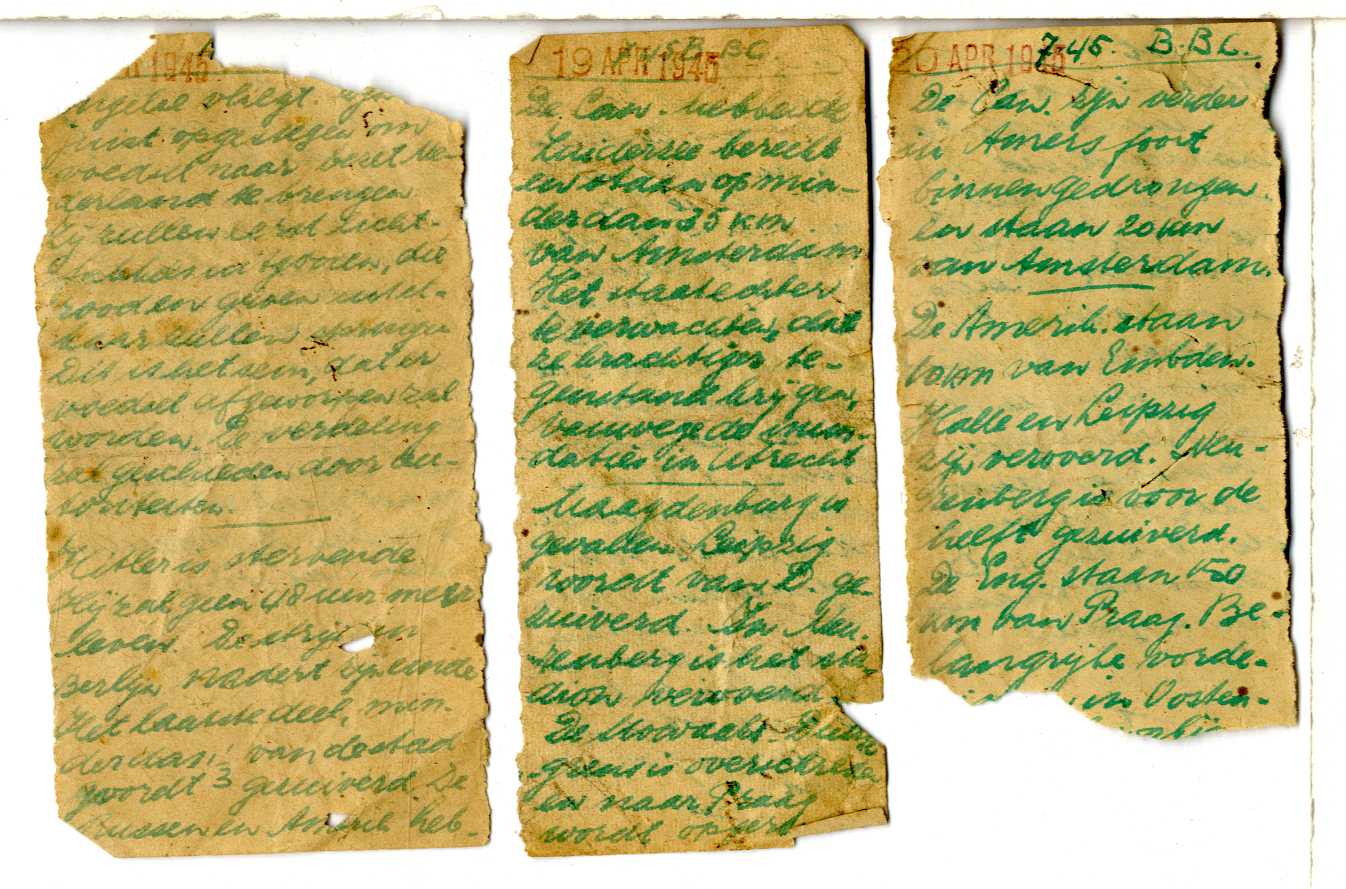 R 1945
Engelse vliegt.
juist opgestegen om
voedsel naar bezet Ne-
derland te brengen.
Zij zullen eerst licht-
gooien, die
rood en groen
zullen
Dit is het sein, dat er
voedsel afgeworpen zal
worden. De verdeling
zal geschieden door au-
toriteiten.
Hitler is stervende
Hij zal geen 48 uur meer
leven. De strijd om
Berlijn nadert zijn einde
Het laatste deel, min-
der dan 1/3 van de stad
wordt gezuiverd De
Russen en Amerik heb-
19 APR 1945 B.BC
De Can. hebben de
Zuiderzee bereikt
en staan op min-
der dan 35 km
van Amsterdam
Het staat echter
te verwachten, dat
ze krachtiger te-
genstand krijgen,
vanwege de inun-
daties in Utrecht.
Maagdenburg is
gevallen. Leipzig
wordt van D. ge-
zuiverd. In Neu-
renberg is het sta-
dion veroverd.
De Slowaaks-Duitse
grens is overschreden
en naar Praag
wordt opger
20 APR 1945 7.45. B.B.C.
De Can. zijn verder
in Amersfoort
binnengedrongen
en staan 20 km
van Amsterdam.
De Amerik. staan
10 km van Embden.
Halle en Leipzig
zijn veroverd. Neu-
renberg is voor de
helft gezuiverd.
De Eng. staan 150
km van Praag. Be-
langrijke vorde-
in Oosten-